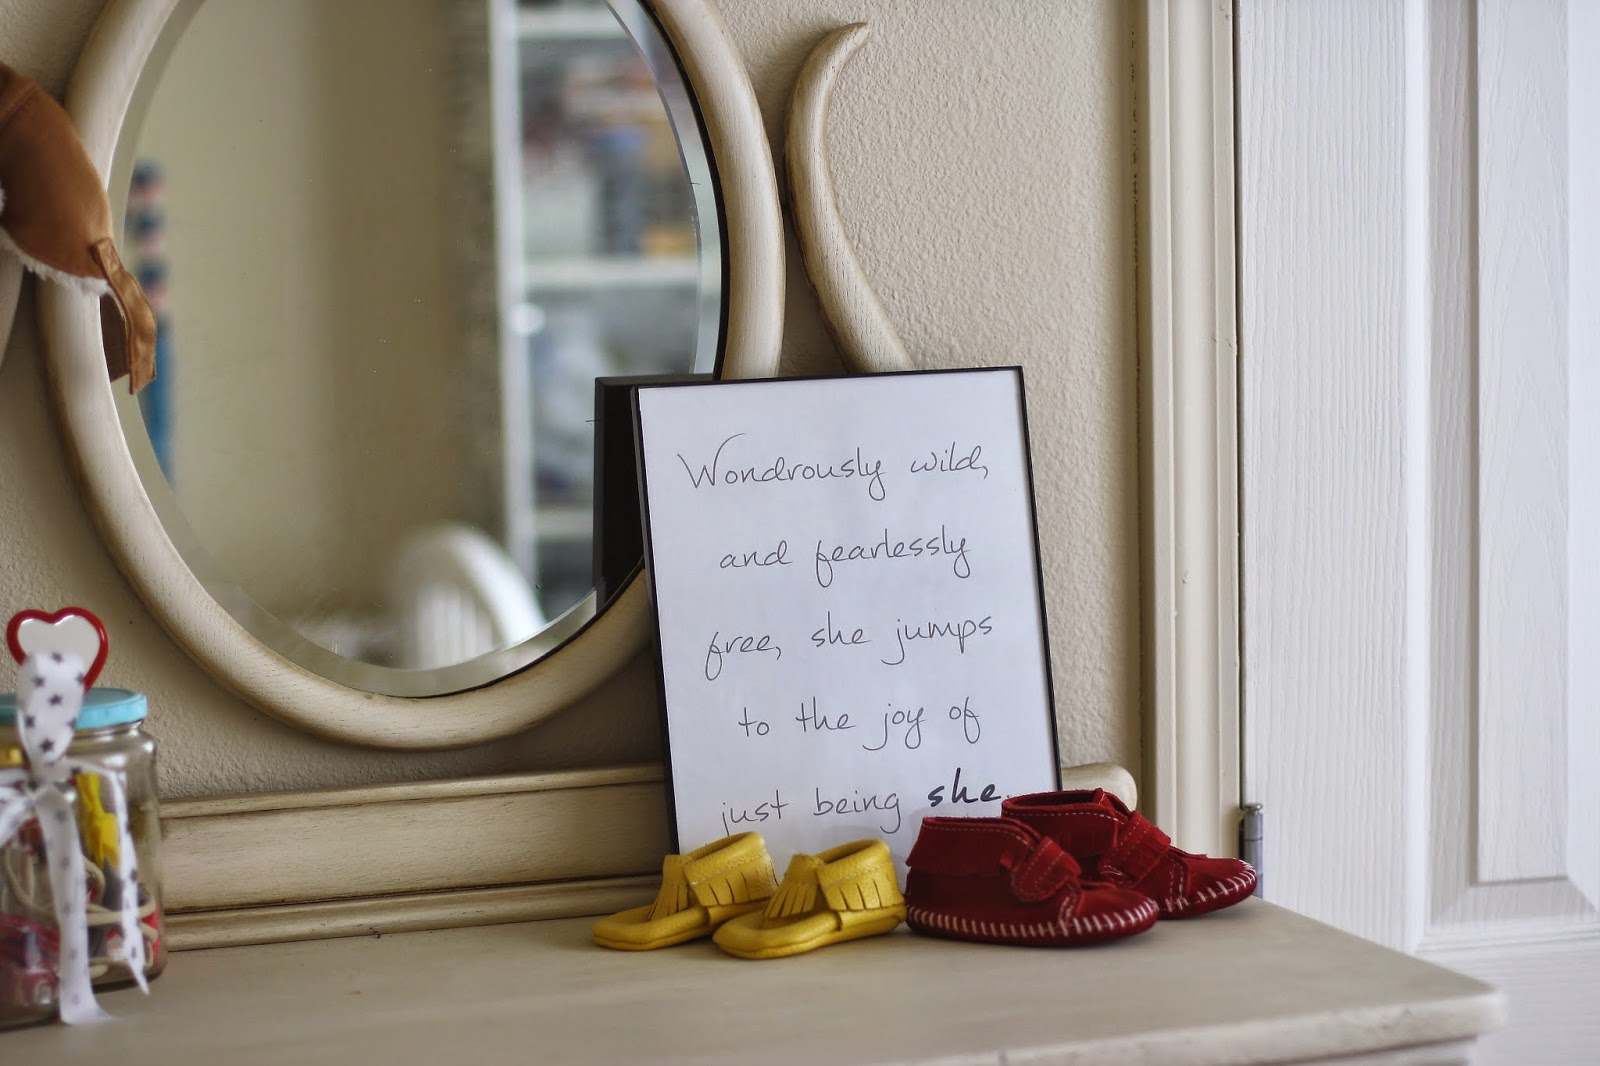 Wondrously wild,
and fearlessly
free, she jumps
to the joy of
just being she.